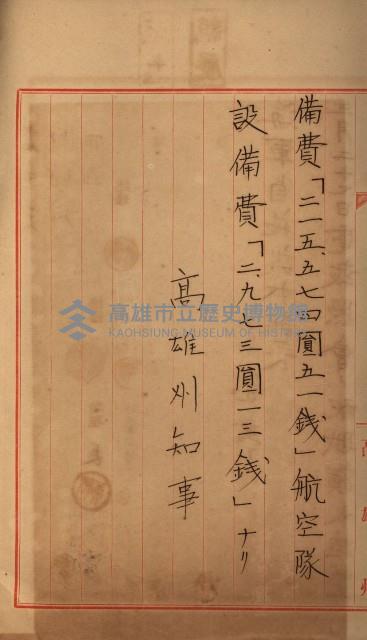 備費「二一五、五七四圓五一錢」航空隊
設備費「二、九七三圓一三錢」ナリ
高雄州知事
高雄市立歷史博物館
KAOHSIUNG MUSEUM OF HISTORY
高雄州